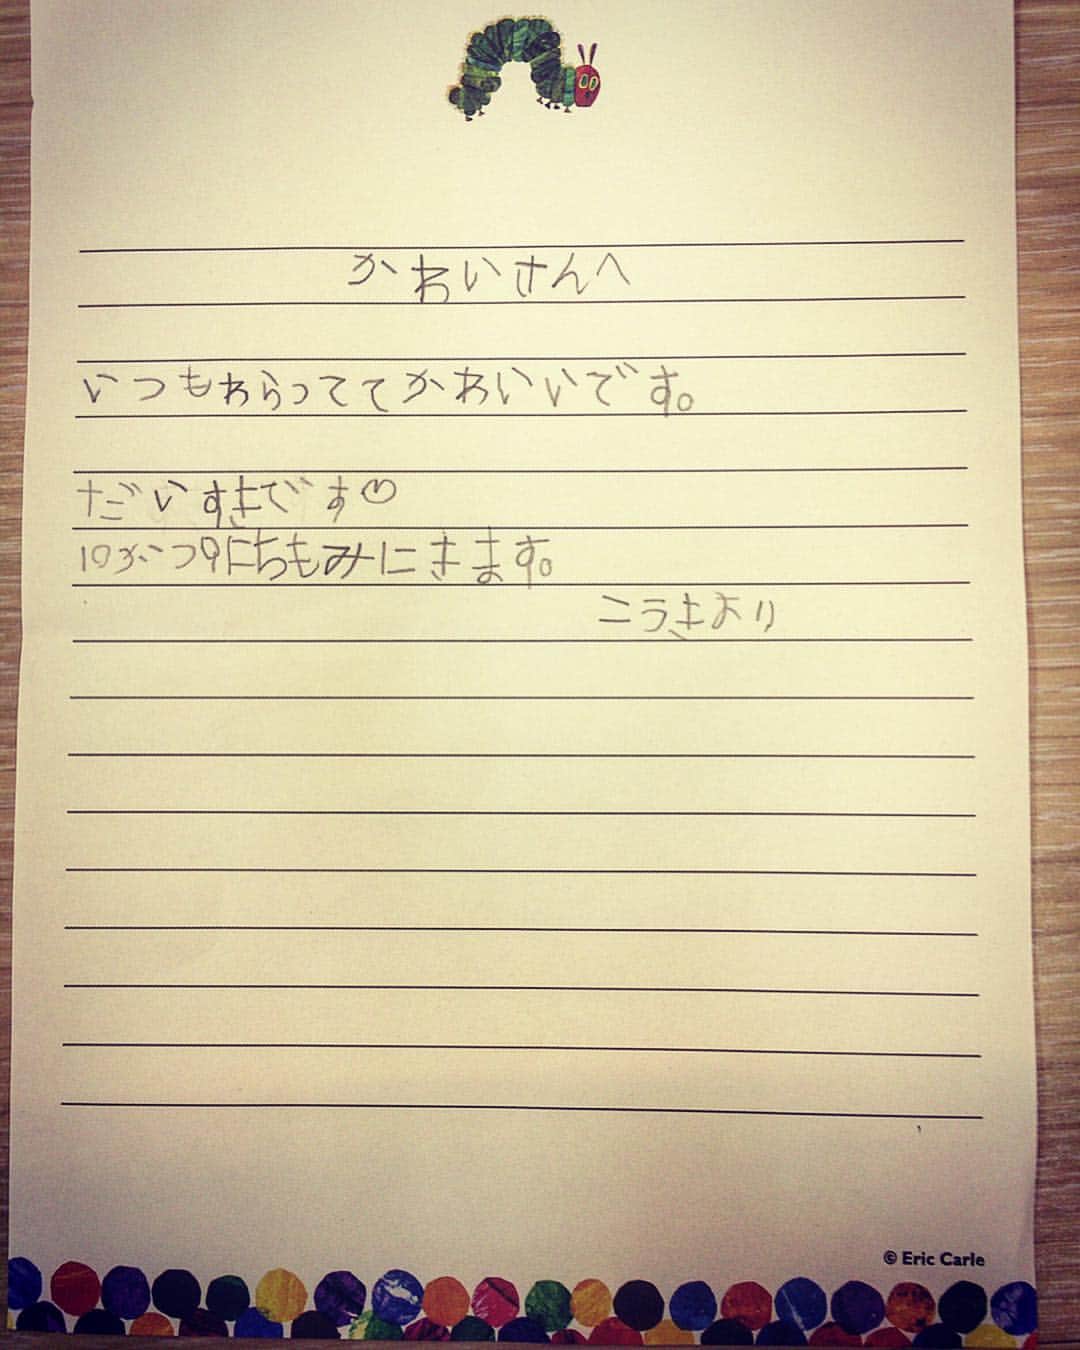 かわいさんへ
いつもわらっててかわいいです。
だいすきです♡
10がつ9にちもみにきます。
こうきより
© Eric Carle